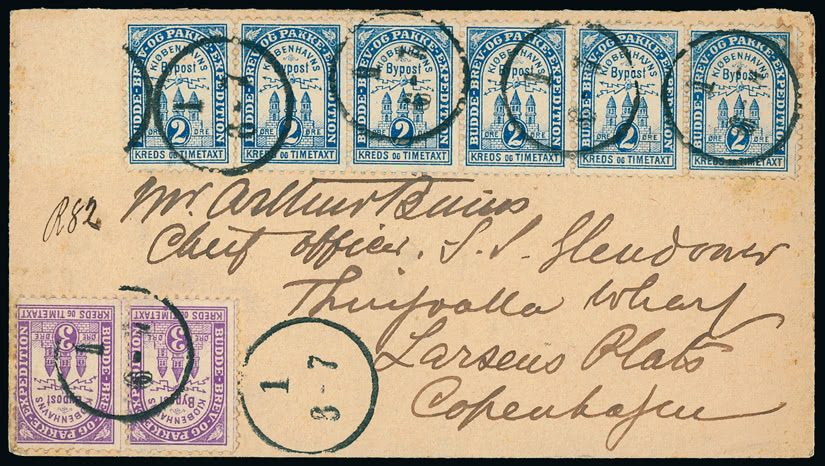 BUDDE-BREV-OG PAKKE-EXPEDITION KJØBENHAVNS Bypost 2 ØRE ØRE KREDS OG TIMETAXT
BUDDE-BREV-OG PAKKE-EXPEDITION KJØBENHAVNS Bypost 2 ØRE ØRE KREDS OG TIMETAXT
BUDDE-BREV-OG PAKKE-EXPEDITION KJØBENHAVNS Bypost 2 ØRE ØRE KREDS OG TIMETAXT
BUDDE-BREV-OG PAKKE-EXPEDITION KJØBENHAVNS Bypost 2 ØRE ØRE KREDS OG TIMETAXT
BUDDE-BREV-OG PAKKE-EXPEDITION KJØBENHAVNS Bypost 2 ØRE ØRE KREDS OG TIMETAXT
BUDDE-BREV-OG PAKKE-EXPEDITION KJØBENHAVNS Bypost 2 ØRE ØRE KREDS OG TIMETAXT
1
8-7
R82
Mr. Arthur
Cheif Officer. S. S. Glendower
Thuifvalla Wharf
Larsens Plats
Copenhafen
BUDDE-BREV-OG PAKKE-EXPEDITION KJØBENHAVNS Bypost 3 ØRE ØRE KREDS OG TIMETAXT
BUDDE-BREV-OG PAKKE-EXPEDITION KJØBENHAVNS Bypost 3 ØRE ØRE KREDS OG TIMETAXT
1
8-7
1
8-7